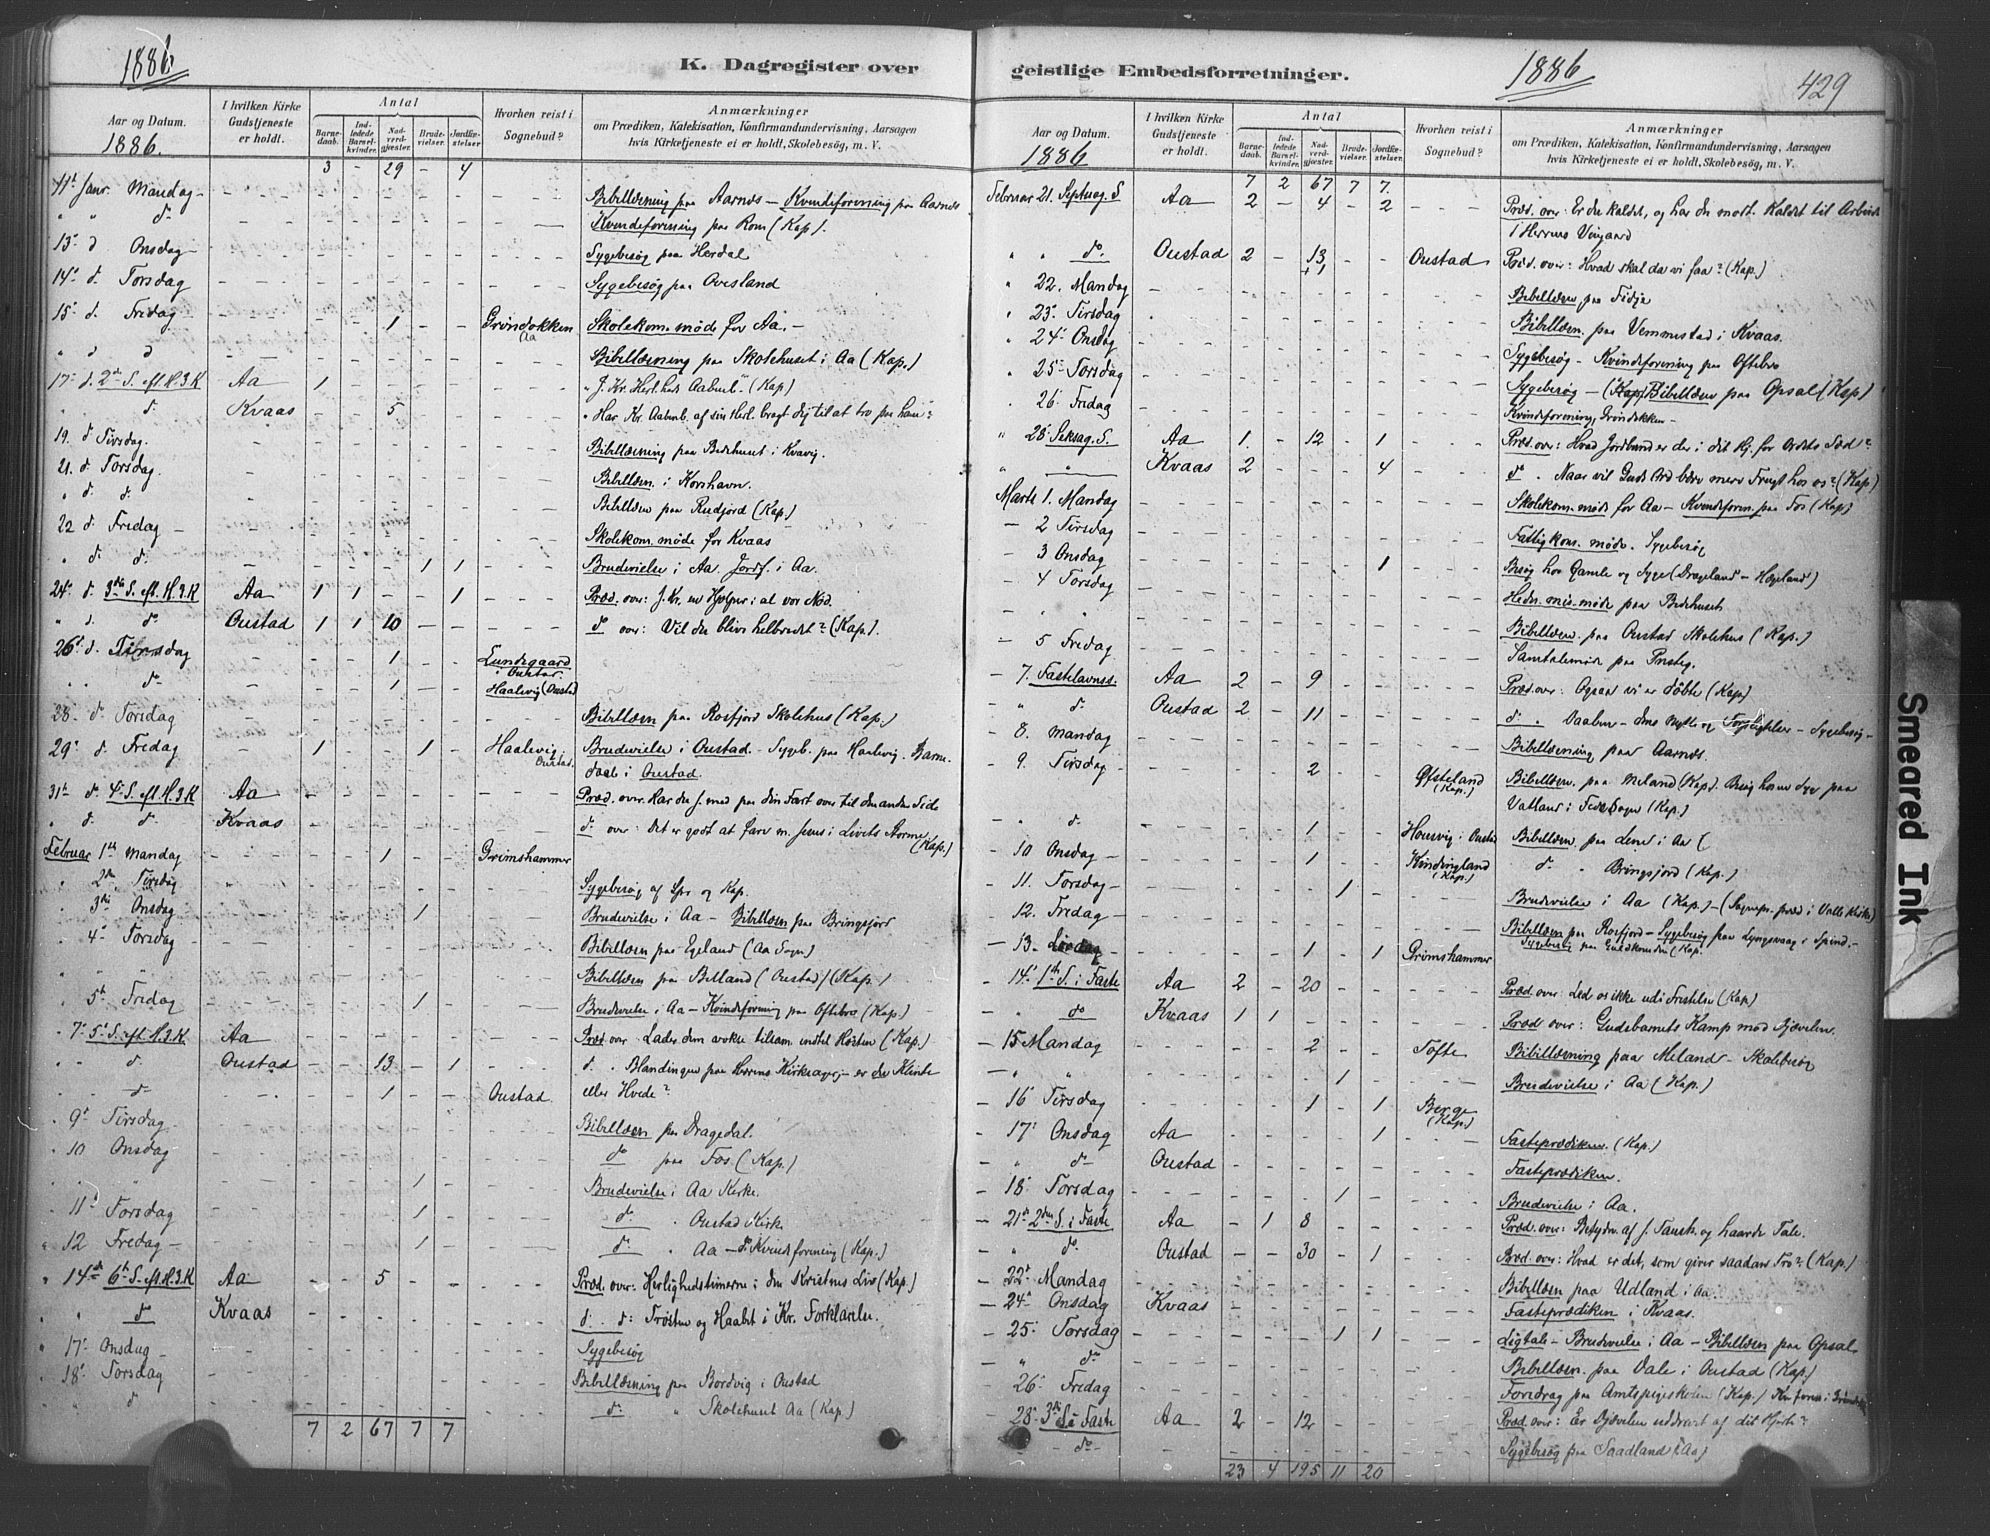 1886
K. Dagregister over
Aar og Datum. 1886.
I hvilken Kirke Gudstjeneste er holdt.
Antal
Barnedaab. Indledede Barselkvinder. Nadverdgjæster. Brudevielser. Jordfæstelser
Hvorhen reist i Sognebud?
Anmærkninger
om Prædiken, Katekisation, Konfirmandundervisning, Aarsagen
hvis Kirketjeneste ei er holdt, Skolebesög, m. V.
3 - 29 - 4
11t Janr. Mandag - Bibellæsning paa Aarnes - Kvindeforening paa Aarnes
" " d. Kvindeforening paa Rom (Kap).
13. d Onsdag - Sygebesøg paa Herdal
14. d. Torsdag Sygebesøg paa Ovesland
15. d. Fredag 1 Grøndokken Aa Skolekom. møde for Aa. -
" d d Bibellæsning paa Skolehuset i Aa (Kap.)
17. d. 2den S. eft. H.3.K Aa 1 "J. Kr. Herl.heds Aabenb." (Kap)
" d. Kvaas 5 " Har Kr. Aabenb. af sin Herl. bragt dig til at tro paa ham?
19. d Tirsdag. Bibellæsning paa Bedehuset i Kvavig.
21. d Torsdag. Bibellæsn. i Korshavn.
" d. d. Bibellæsn paa Rudjord (Kap.)
22 d Fredag - Skolekom. møde for Kvaas
" d. d. 1 1 Brudevielse i Aa. Jordf. i Aa.
24. d 3die S. eft. H.3.K Aa 1 1 - - 1 Præd. over: J. Kr. en Hjælper i al vor Nød.
" d. d Oustad 1 1 10 do over: Vil du blive helbredet? (Kap).
26. d. Tirsdag 1 Lundegaard Oustad
" " do 1 Haalevig (Oustad)
28. d. Torsdag Bibellæsn paa Rosfjord Skolehus (Kap.)
29. d. Fredag 1 1 Haalevig. Oustad. Brudevielse i Oustad. Sygeb. paa Haalevig. Barne-
daab i Oustad.
31te d 4. S. eft. H.3.K Aa Præd. over: Har du J. med paa din Fart over til den anden Side
" d. d Kvaas d. over: Det er godt at fare m. Jesus i Livets Storme (Kap.)
Februar 1te Mandag 1 Grimshammer
" 2den Tirsdag Sygebesøg af Spr og Kap.
" 3die Onsdag 1 Brudevielse i Aa - Bibellæsn paa Bringsjord
" 4. Torsdag Bibellæsn paa Egland (Aa Sogn)
" " Bibellæsn paa Birkeland (Oustad) (Kap.)
" 5te Fredag 1 Brudevielse i Aa - Kvindeforening paa Oftebro (Kap)
" 7. 5. S. eft H.3.K Aa Præd over: Lader dem vokse tilsam. indtil Høsten (Kap.)
" d. Oustad - - 13 - 1 d. " Blandingen paa Herrens Kirkeager - er du Klinte
" do 1 Oustad eller Hvede?
" 9. Tirsdag Bibellæsn paa Dragedal.
" 10 Onsdag do paa Fos (Kap.)
" " 1 Brudevielse i Aa Kirke.
" 11. Torsdag 1 d. " Oustad Kirke
" 12 Fredag - 1 d. " Aa - d. Kvindforening (Kap.)
" 14de 6te S. eft. H.3.K Aa - - 5 Præd. over: Herlighedstimerne i den Kristnes Liv (Kap.)
" do Kvaas d. " d: Trøsten og Haabet i Kr. Forklarelse.
" 17. Onsdag - Sygebesøg
" 18. Torsdag Bibellæsning paa Bordvig i Oustad
" d do " Skolehuset Aa (Kap.)
7 2 67 7 7
geistlige Embedsforretninger.
1886
429
Aar og Datum. 1886
I hvilken Kirke Gudstjeneste er holdt.
Antal
Barnedaab. Indledede Barselkvinder. Nadverdgjæster. Brudevielser. Jordfæstelser.
Hvorhen reist i Sognebud?
Anmærkninger
om Prædiken, Katekisation, Konfirmandundervisning, Aarsagen
hvis Kirketjeneste ei er holdt, Skolebesög, m. V.
7 2 67 7 7.
Februar 21. Septuag. S Aa 2 - 4 - 2 Præd. over: Er du kaldet, og har du modt. Kaldet til Arbeide
i Herrens Vingaard
" " do. Oustad 2 - 13 +1 - - Oustad Præd. over: Hvad skal da vi faa? (Kap.)
" 22. Mandag Bibellæsn. paa Fidje
" 23. Tirsdag Bibellæsn. paa Vemmestad i Kvaas.
" 24. Onsdag Sygebesøg - Kvindeforening paa Oftebro
" 25. Torsdag Sygebesøg - (Kap) Bibellæsn paa Opsal (Kap)
" 26. Fredag Kvindeforening, Grindokken -
" 28. Seksag. S. Aa 1. - 12 - 1 Præd. over: Hvad Jordbund er der i dit Hj. for Ordets Sæd?
" " Kvaas 2 4 do " Naar vil Guds Ord bære mere Frugt hos os? (Kap)
Marts 1. Mandag Skolekom. møde for Aa - Kvindeforen. paa Fos (Kap)
- 2 Tirsdag Fattigkom. møde. Sygebesøg
- 3 Onsdag 1 Besøg hos Gamle og Syge (Drageland - Hægeland)
- 4 Torsdag Hedn. mis. møde paa Bedehuset
- " " Bibellæsn. paa Oustad Skolehus (Kap.)
- 5 Fredag Samtalemøde paa Prestg.
- 7. Fastelavnss. Aa 2 - 9 Præd. over: Ogsaa vi er døbte (Kap)
- " d. Oustad 2 - 11 d. " Daaben - dens Nytte og Forpligtelse - Sygebesøg -
- 8. Mandag Bibellæsning paa Aarnes.
- 9. Tirsdag 2 Øfsteland (Kap.) Bibellæsn. paa Meland (Kap). Besøg hos en Syg paa
Vatland i Feda Sogn (Kap.)
- " d. 1 Housvig i Oustad Bibellæsn. paa Lene i Aa (
- 10 Onsdag - 1 Kindingland (Kap.) d. " Bringsjord (Kap.)
- 11. Torsdag - 1 Brudevielse i Aa (Kap.)
- 12. Fredag - Bibellæsn paa Rosfjord - Sygebesøg paa Lyngsvaag i Spind. -
- 13. Lördag 1 1 Grimshammer Sygebesøg paa (Kap.
- 14. 1te S. i Faste Aa 2 - 20 Præd. over: Led os ikke udi Fristelse (Kap)
- " do Kvaas 1 1 Præd over: Gudsbarnets Kamp mod Djævelen.
- 15 Mandag 2 Tofte Bibellæsning paa Meland - Skolebesøg
- " " 1 Brudevielse i Aa (Kap.)
- 16 Tirsdag 1 - 1 Berge (Kap.)
- 17. Onsdag Aa 1 Fasteprædiken. (Kap.)
- " do Oustad Fasteprædiken.
- 18. Torsdag 1 Brudevielse i Aa.
- 21de 2den S. i Faste Aa - 1 8 Præd. over: Betydn. af J. Taush. og haarde Tale.
- " do. Oustad - - 30 - 1 Præd. over: Hvad er det, som giver saadan Tro? (Kap.)
- 22. Mandag Bibellæsn paa Udland i Aa.
- 24. Onsdag Kvaas Fasteprædiken i Kvaas.
- 25. Torsdag 1 1 Ligtale - Brudevielse i Aa - Bibellæsn paa Opsal
- " do Bibellæsn. paa Vale i Oustad (Kap.)
- 26. Fredag Foredrag paa Amtspigeskolen (Kap.)
- 28. 3die S i Faste Aa 2 - 12 Præd. over: Er Djævelen uddrevet af dit Hjerte?
- do - Sygebesøg paa Saadland i Aa)
23 4 195 11 20
Smeared Ink